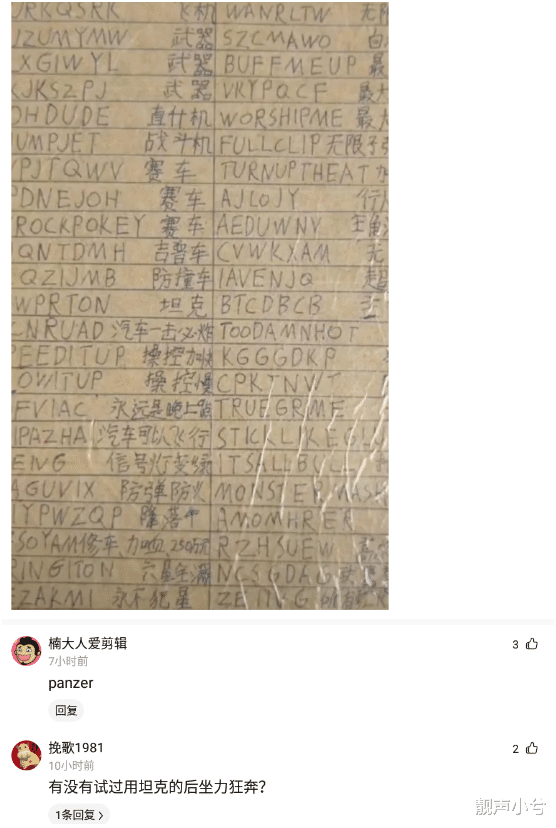 JRKQSRK 飞机 WANRLTW 无限
JZUMYMW 武器 SZCMAWO 白
XGIWYL 武器 BUFFMEUP 最
KJKSZPJ 武器 VKYPQCF 最大
OHDUDE 直什机 WORSHIPME 最大
JUMPJET 战斗机 FULLCLIP 无限子弹
VPJTQWV 赛车 TURNUPTHEAT 加
PDNEJOH 赛车 AJLOJY 行人
ROCKPOKEY 赛车 AEDUWNV
QNTDMH 吉普车 CVWKXAM 无
QZIJMB 防撞车 IAVENJQ 超
WPRTON 坦克 BTCDBCB
LNRUAD 汽车一击必炸 TOODAMNHOT
PEEDITUP 操控加快 KGGGDKP
OWITUP 操控慢 CPKTNWT
FVIAC 永远是晚上 TRUEGRIME
IPAZHA 汽车可以飞行 STICKLIKEGLU
EING 信号灯变绿 ITSALLBULL
AGUVIX 防弹防火 MONSTERMASH
IYPWZQP 降落伞 AMOMHRER
SOYAM 修车,加血,250万元 RZHSUEW
RINGITON 六星全满 NCSGDAG
EZAKMI 永不犯星 ZEIING
楠大人爱剪辑
3
7小时前
panzer
回复
挽歌1981
2
10小时前
有没有试过用坦克的后坐力狂奔？
1条回复 >
靓声小兮